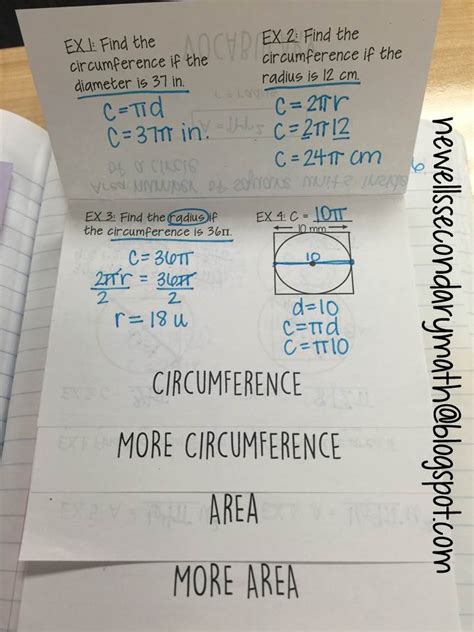 EX 1: Find the
circumference if the
diameter is 37 in.
C=πd
C=37π in.
EX 2: Find the
circumference if the
radius is 12 cm.
C=2πr
C=2π12
C=24π cm
EX 3: Find the radius if
the circumference is 36π.
C=36π
2πr = 36π
2 2
r=18 u
EX 4: C = 10π
10 mm
10
d=10
C=πd
C=π10
CIRCUMFERENCE
MORE CIRCUMFERENCE
AREA
MORE AREA
newellssecondarymath@blogspot.com
VOCABULARY
A = πr²
Area number of square units inside
of a circle